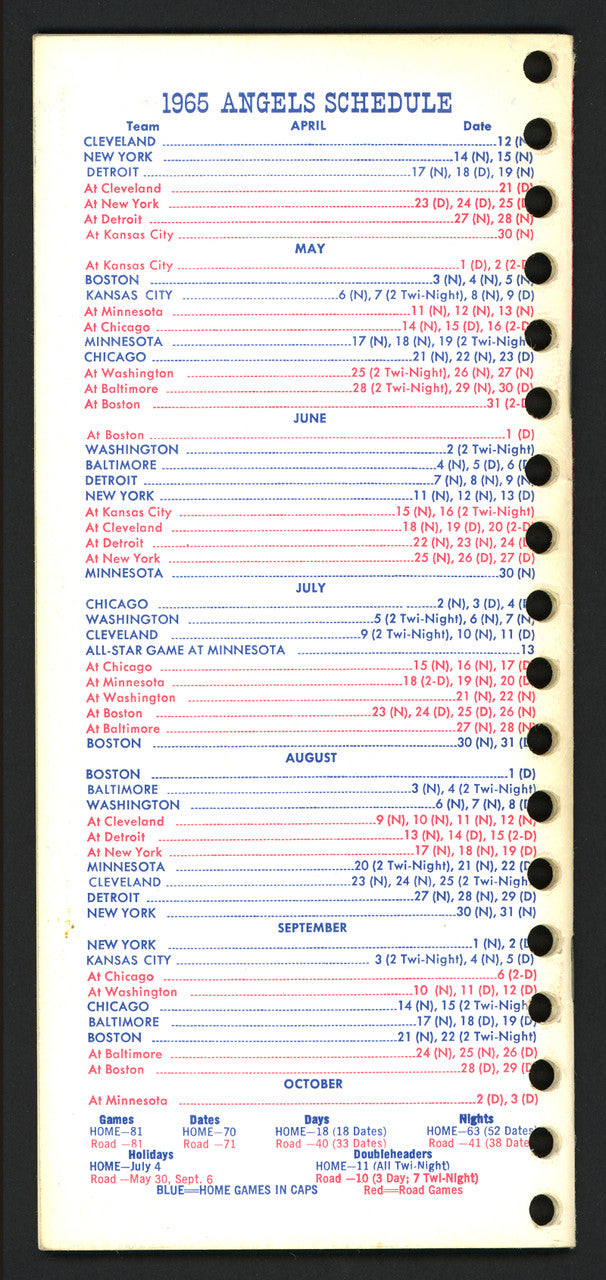 1965 ANGELS SCHEDULE
Team APRIL Date
CLEVELAND 12 (N
NEW YORK 14 (N), 15 (N)
DETROIT 17 (N), 18 (D), 19 (N)
At Cleveland 21 (D)
At New York 23 (D), 24 (D), 25 (D
At Detroit 27 (N), 28 (N)
At Kansas City 30 (N)
MAY
At Kansas City 1 (D), 2 (2-D
BOSTON 3 (N), 4 (N), 5 (N)
KANSAS CITY 6 (N), 7 (2 Twi-Night), 8 (N), 9 (D)
At Minnesota 11 (N), 12 (N), 13 (N)
At Chicago 14 (N), 15 (D), 16 (2-D
MINNESOTA 17 (N), 18 (N), 19 (2 Twi-Nigh
CHICAGO 21 (N), 22 (N), 23 (D)
At Washington 25 (2 Twi-Night), 26 (N), 27 (N)
At Baltimore 28 (2 Twi-Night), 29 (N), 30 (D)
At Boston 31 (2-D
JUNE
At Boston 1 (D)
WASHINGTON 2 (2 Twi-Night)
BALTIMORE 4 (N), 5 (D), 6 (D
DETROIT 7 (N), 8 (N), 9 (N
NEW YORK 11 (N), 12 (N), 13 (D)
At Kansas City 15 (N), 16 (2 Twi-Night)
At Cleveland 18 (N), 19 (D), 20 (2-D
At Detroit 22 (N), 23 (N), 24 (
At New York 25 (N), 26 (D), 27 (D)
MINNESOTA 30 (N)
JULY
CHICAGO 2 (N), 3 (D), 4 (
WASHINGTON 5 (2 Twi-Night), 6 (N), 7 (N
CLEVELAND 9 (2 Twi-Night), 10 (N), 11 (D)
ALL-STAR GAME AT MINNESOTA 13
At Chicago 15 (N), 16 (N), 17 (D
At Minnesota 18 (2-D), 19 (N), 20 (
At Washington 21 (N), 22 (N)
At Boston 23 (N), 24 (D), 25 (D), 26 (N)
At Baltimore 27 (N), 28 (N
BOSTON 30 (N), 31 (
AUGUST
BOSTON 1 (D)
BALTIMORE 3 (N), 4 (2 Twi-Night)
WASHINGTON 6 (N), 7 (N), 8 (
At Cleveland 9 (N), 10 (N), 11 (N), 12 (N
At Detroit 13 (N), 14 (D), 15 (2-D)
At New York 17 (N), 18 (N), 19 (D)
MINNESOTA 20 (2 Twi-Night), 21 (N), 22 (D
CLEVELAND 23 (N), 24 (N), 25 (2 Twi-Nigh
DETROIT 27 (N), 28 (N), 29 (D)
NEW YORK 30 (N), 31 (N)
SEPTEMBER
NEW YORK 1 (N), 2 (
KANSAS CITY 3 (2 Twi-Night), 4 (N), 5 (D)
At Chicago 6 (2-D)
At Washington 10 (N), 11 (D), 12 (D)
CHICAGO 14 (N), 15 (2 Twi-Nigh
BALTIMORE 17 (N), 18 (D), 19 (D
BOSTON 21 (N), 22 (2 Twi-Night)
At Baltimore 24 (N), 25 (N), 26 (D)
At Boston 28 (D), 29 (
OCTOBER
At Minnesota 2 (D), 3 (D)
Games Dates Days Nights
HOME—81 HOME—70 HOME—18 (18 Dates) HOME—63 (52 Dates
Road —81 Road —71 Road —40 (33 Dates) Road —41 (38 Date
Holidays Doubleheaders
HOME—July 4 HOME—11 (All Twi-Night)
Road —May 30, Sept. 6 Road —10 (3 Day; 7 Twi-Night)
BLUE=HOME GAMES IN CAPS Red=Road Games